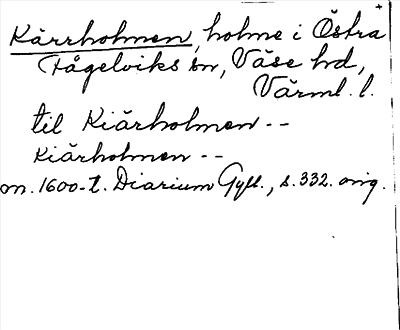 Kärrholmen, holme i Östra
Fågelviks sn, Väse hd,
Värml. l.
til Kiärholmen --
Kiärholmen --
m. 1600-t. Diarium Gyll., s. 332. orig.